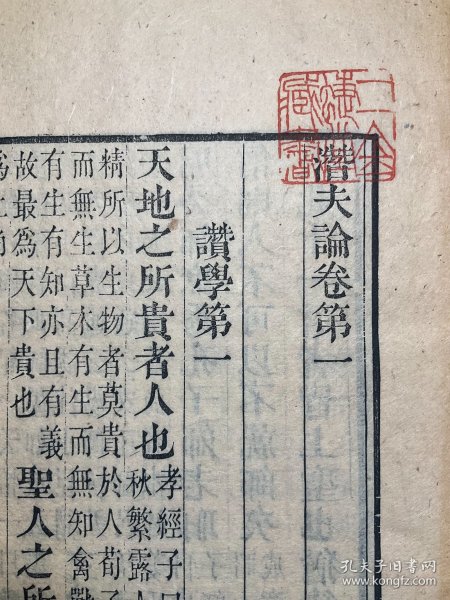 潛夫論卷第一
讚學第一
天地之所貴者人也
孝經子曰
秋繁露人
精所以生物者莫貴於人荀子
而無生草木有生而無知禽獸
有生有知亦且有義
故最爲天下貴也
聖人之所
孔夫子旧书网
www.kongfz.com